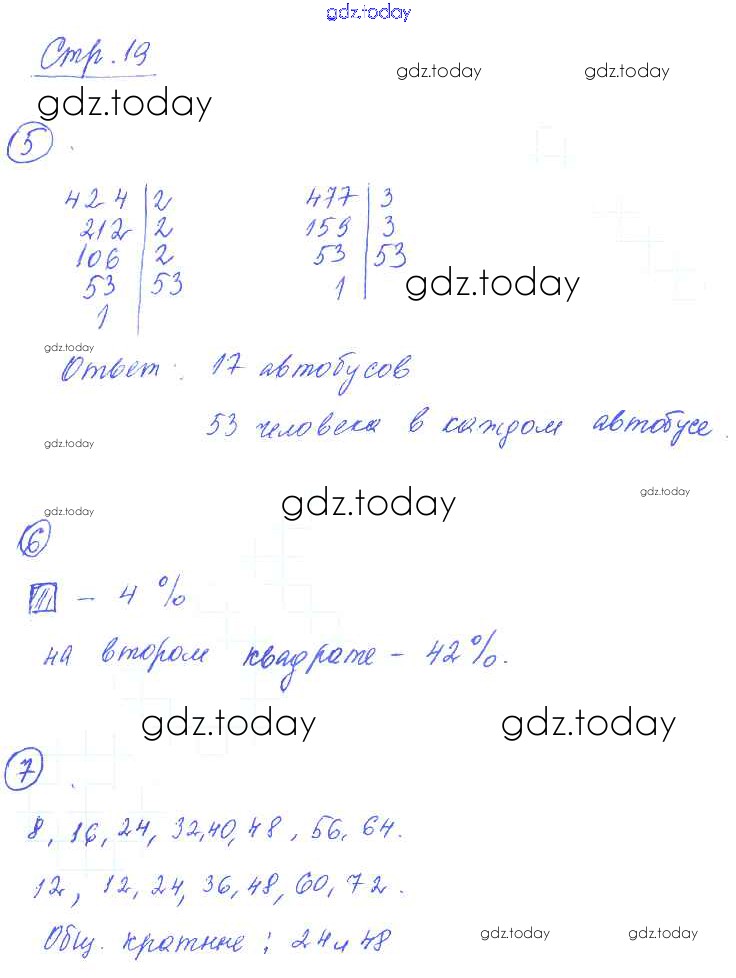 gdz.today
Стр. 19
gdz.today
gdz.today
gdz.today
5
424 | 2
212 | 2
106 | 2
53 | 53
1
477 | 3
159 | 3
53 | 53
1
gdz.today
gdz.today
Ответ: 17 автобусов
53 человека в каждом автобусе.
gdz.today
gdz.today
gdz.today
gdz.today
6
– 4 %
на втором квадрате – 42%.
gdz.today
gdz.today
7
8, 16, 24, 32, 40, 48, 56, 64.
12, 12, 24, 36, 48, 60, 72.
Общ. кратные: 24 и 48
gdz.today
gdz.today